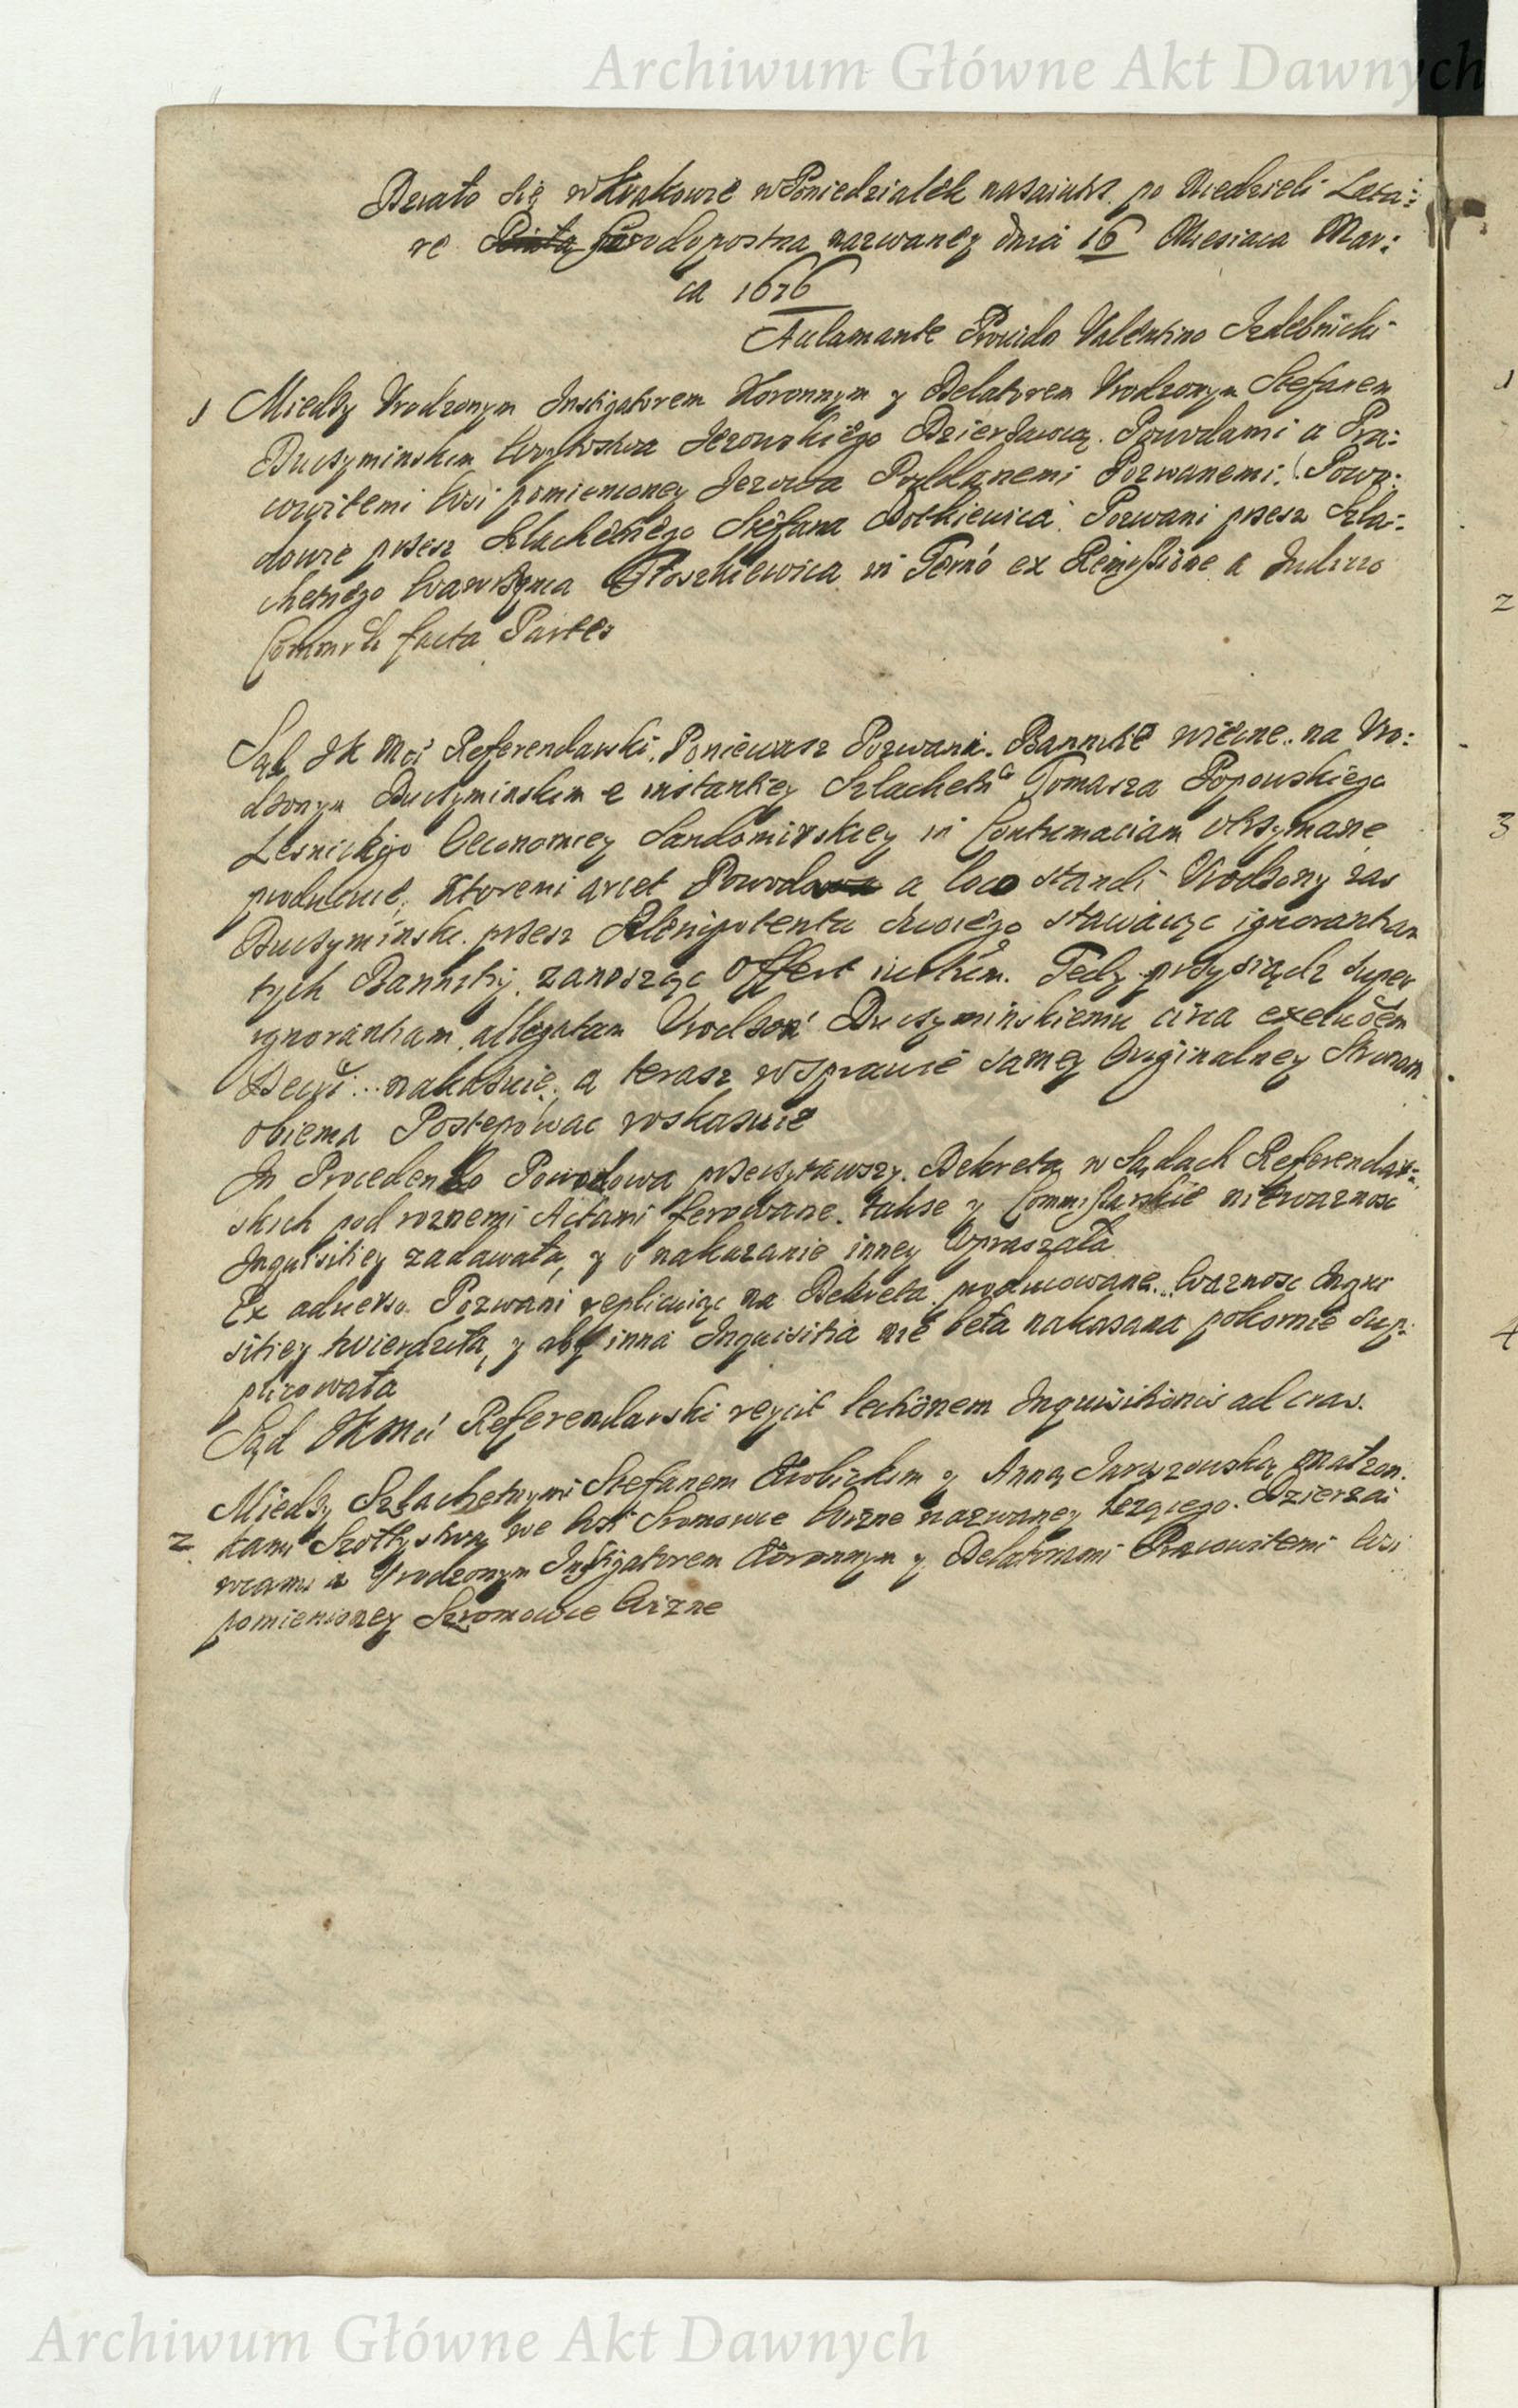 Archiwum Główne Akt Dawnych
Działo się w Krakowie w Poniedziałek nasaiutrz po Niedzieli Leta:
re srodopostna nazwaney dnia 16 Miesiaca Mar:
ca 1676
Aclamante Prouido Valentino Izdebnicki
1 Miedzy Vrodzonym Instigatorem Koronnym y Delatorem Vrodzonym Stefanem
Duczyminskim Woytostwa Jezowskiego Dzierzawcą Powodami a Pra:
cowitemi Wsi pomienioney Jezowa Poddanemi Pozwanemi. Powo:
dowie przez Szlachetnego Stefana Pozwani przez Szla:
chetnego Wawrzynca in Termo ex Remissione a Iudicio
facta Partes
Sąd JK Mci Referendarski. Poniewasz Pozwani Bannitie wieczne na Vro:
dzonym Duczyminskim e instantiey Szlachetno Tomasza Popowskiego
Lesnickego Oeconomiey Sandomirskiey in Contumaciam otrzymane
producuie, ktoremi arcet Powodowa a loco standi Vrodzony zas
Duczyminski przez Plenipotenta swoiego stawaiąc ignorantiam
tych Bannitiy zanosząc offert Tedy przysiądz super
ignorantiam allegatam Vrodzon Duczyminskiemu circa
nakazuie, a terasz w sprawie samey Originalney Stronom
obiema Postepowac roskazuie
In Procedendo Powodowa przeczytawszy Dekreta w Sądach Referendar:
skich pod roznemi Actami ferowane. takze y Commissarskie niewaznosc
Inquisitiey zadawała, y o nakazanie inney Vpraszała
Ex aduerso Pozwani replicuiąc na Dekreta producowane. Waznosc Inqui
sitiey twierdziła, y aby inna Inquisitia nie beła nakazana pokornie sup:
plicowała
Sąd JKMci Referendarski reijcit lectionem Inquisitionis ad cras.
2 Miedzy Szlachetnymi Stefanem y Anną małzon:
kami Szołtystwa we Wsi Sromowce Wizne nazwaney lezącego Dzierzaw
cami a Vrodzonym Instigatorem Koronnym y Delatorami Pracowitemi Wsi
pomienioney Szromowce Wizne
1
2
3
4
Archiwum Główne Akt Dawnych